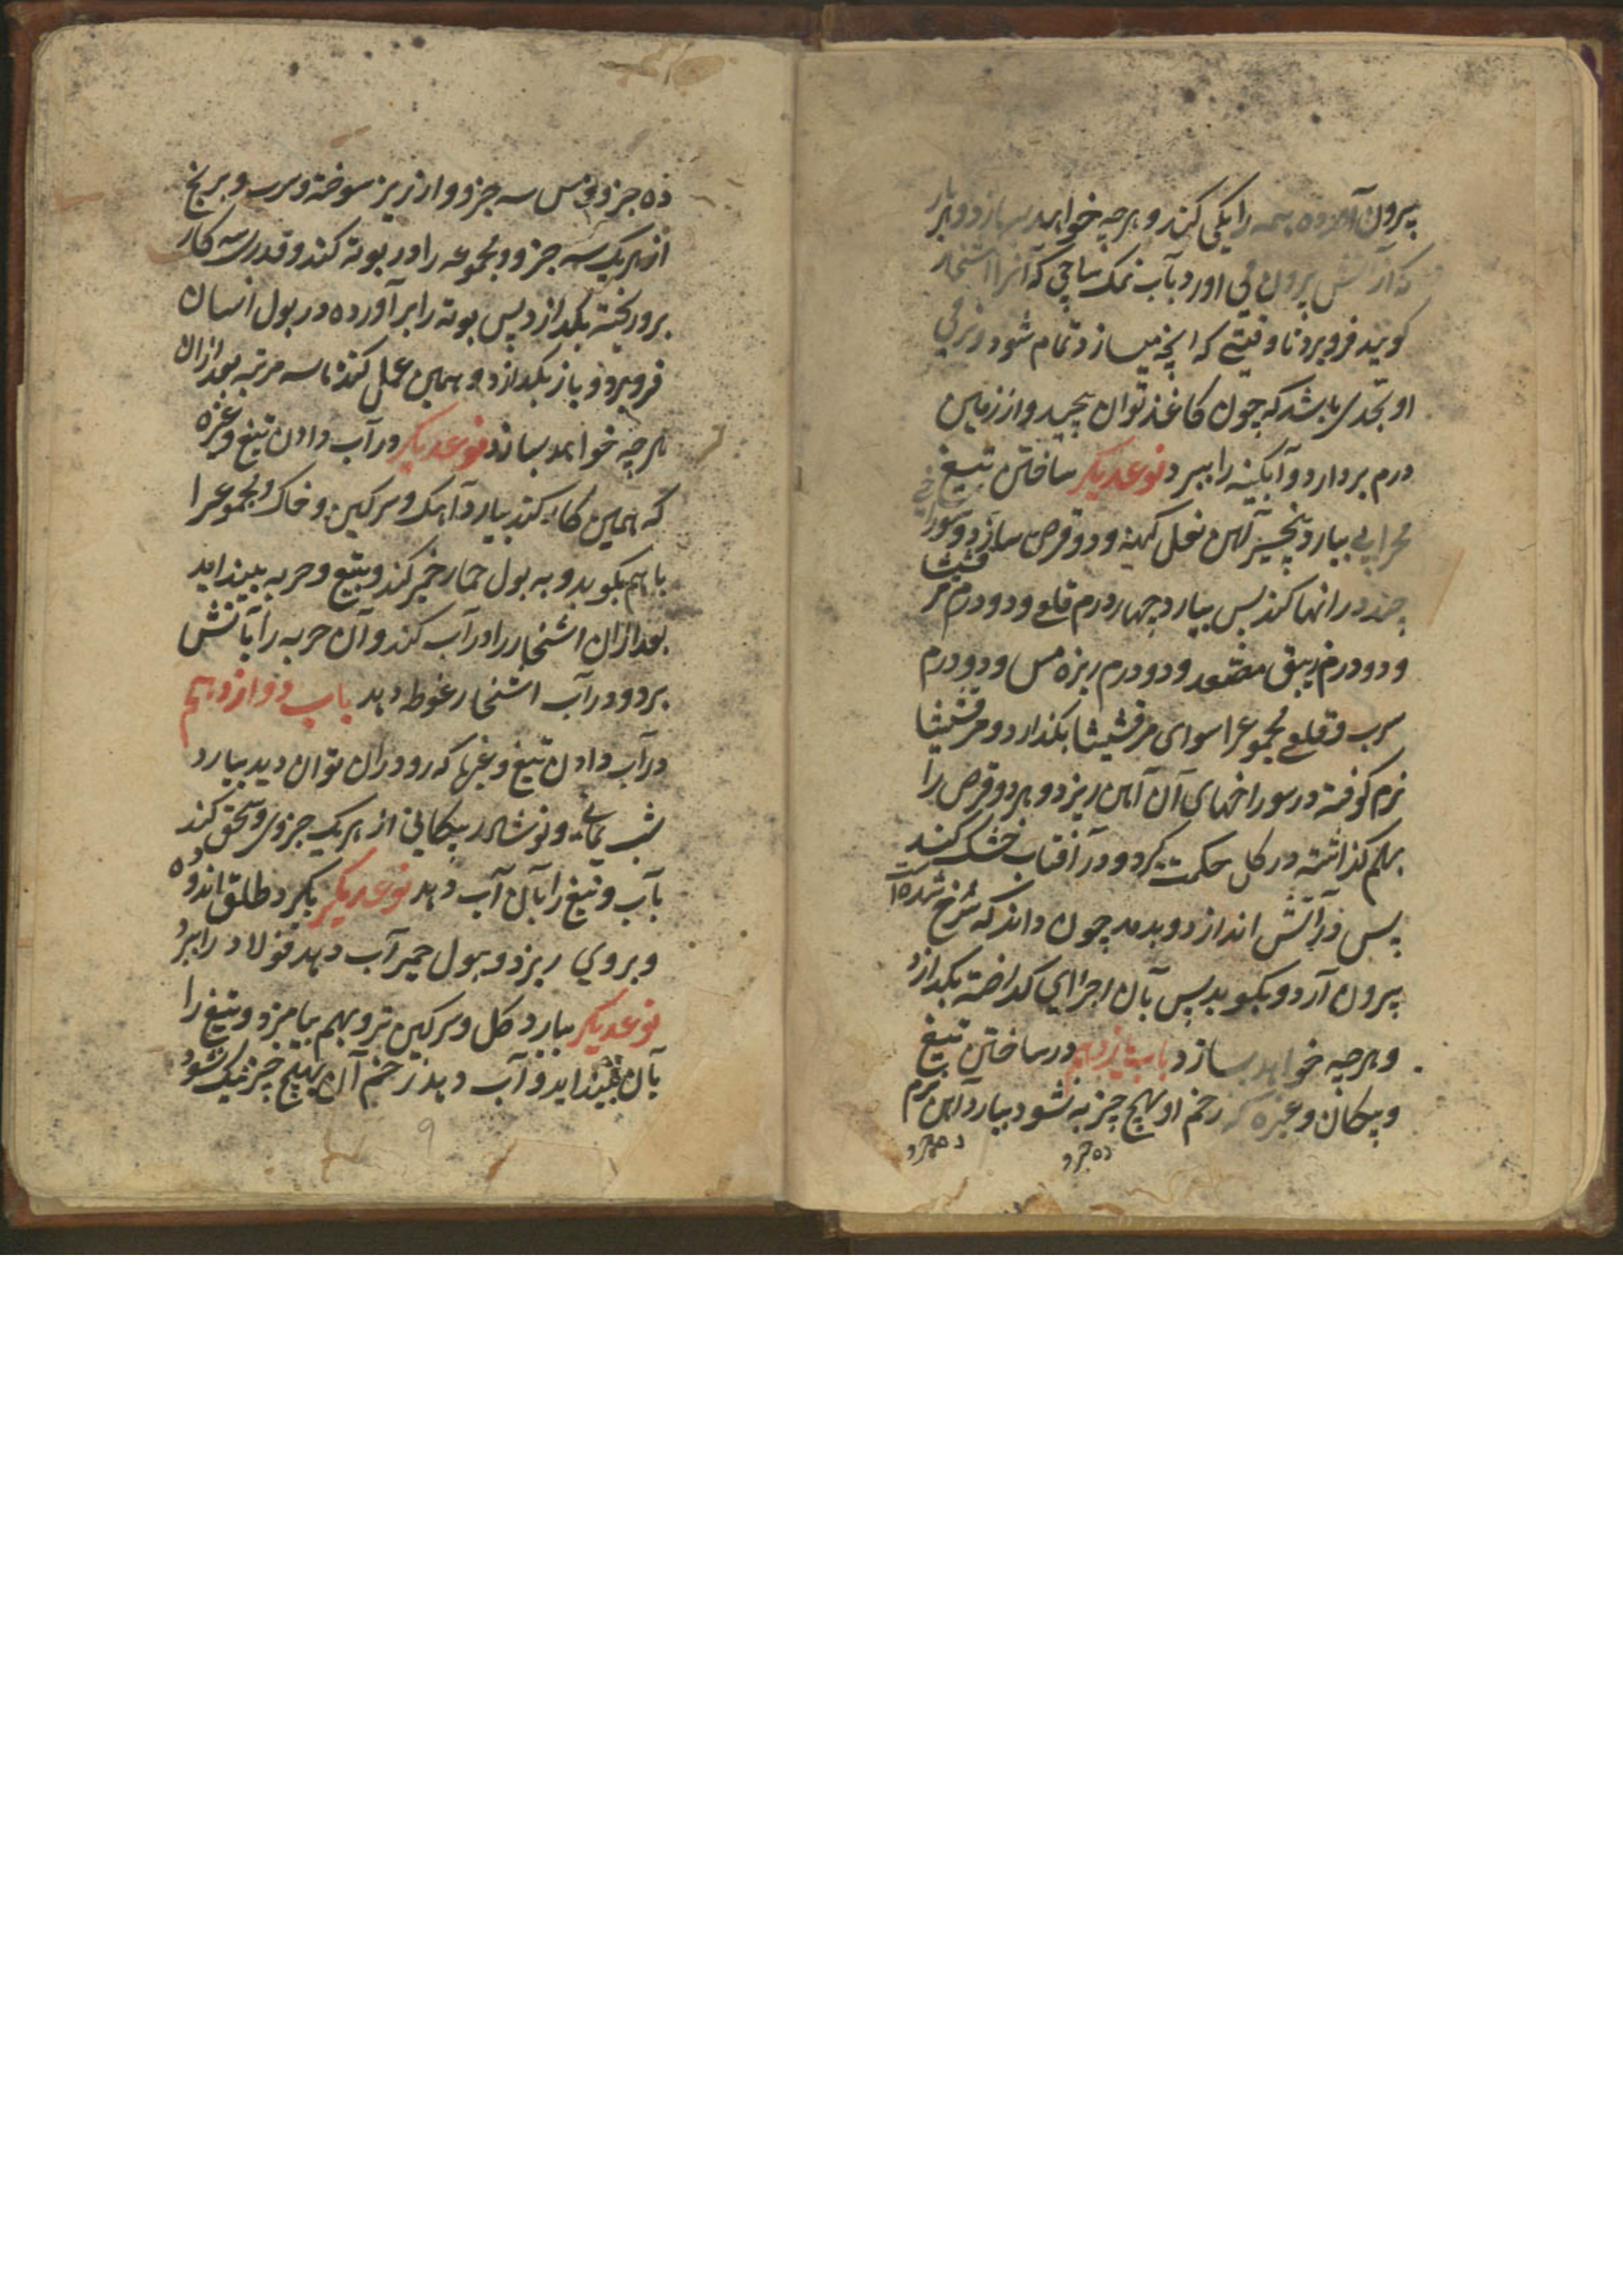 بیرون آورده همه را یکی کند و هرچه خواهد بسازد و هربار
که از آتش بیرون می اورد بآب نمک ساجی که آنرا اشنخار
کویند فرو برد تا وقیتے که انچه میسازد تمام شود و نرمی
او بحدی باشد که چون کاغذ توان پیچید و از زمین
درم بردارد و آبکینه را ببرد نوعدیکر ساختن تیغ
محرابی بیارد پنچسیر آهن نعل کهنه و دو قرص سازد و سوراخی
چند در انها کند پس بیارد چهار درم قلعے و دو درم مرقشیشا
و دو درم زیبق مصعد و دو درم ریزه مس و دو درم
سرب و قلعے مجموعرا سوای مرقشیشا بکدازد و مرقشیشا
نرم کوفته در سوراخهای آن آهن ریزد و هردو قرص را
بهم کذاشته در کل حکمت کیرد و در آفتاب خشک کند
پس در آتش اندازد و بدمد چون داند که سرخ شده است
بیرون آرد و بکوبد پس بآن اجزای کداخته بکدازد
و هرچه خواهد بسازد باب یازدهم در ساختن تیغ
و پیکان و غیره که زخم او بهیچ چیز به نشود بیارد آهن نرم
ده جزو
ده جزو
ده جزو و مس سه جزو و ارزیز سوخته و سرب و برنج
از هریک سه جزو و مجموعه را در بوته کند و قدری سه کار
برو ریخته بکدازد پس بوته را بر آورده در بول انسان
فرو برد و باز بکدازد و همین عمل کند تا سه مرتبه بعد ازان
هرچه خواهد بسازد نوعدیکر در آب دادن تیغ و غیره
که همین کار کند بیارد آهک و سرکین و خاک و مجموعرا
باهم بکوبد و به بول حمار خمیر کند و بتیغ و حربه بیندابد
بعد ازان اشنخار را در آب کند و آن حربه را بآتش
برد و در آب اشنخار غوطه دهد باب دوازدهم
در آب دادن تیغ و غیرها که رو دران توان دید بیارد
شب یمانے و نوشادر پیکانی از هریک جزوی و سحق کند
بآب و تیغ را بآن آب دهد نوعدیکر بکیرد طلق اندوده
و بروی ریزد و ببول حمیر آب دهد فولاد را ببرد
نوعدیکر بیارد کل و سرکین تر و بهم بیامیزد و تیغ را
بآن بیندابد و آب دهد زخم آن بهیچ چیز نیک نشود
۹